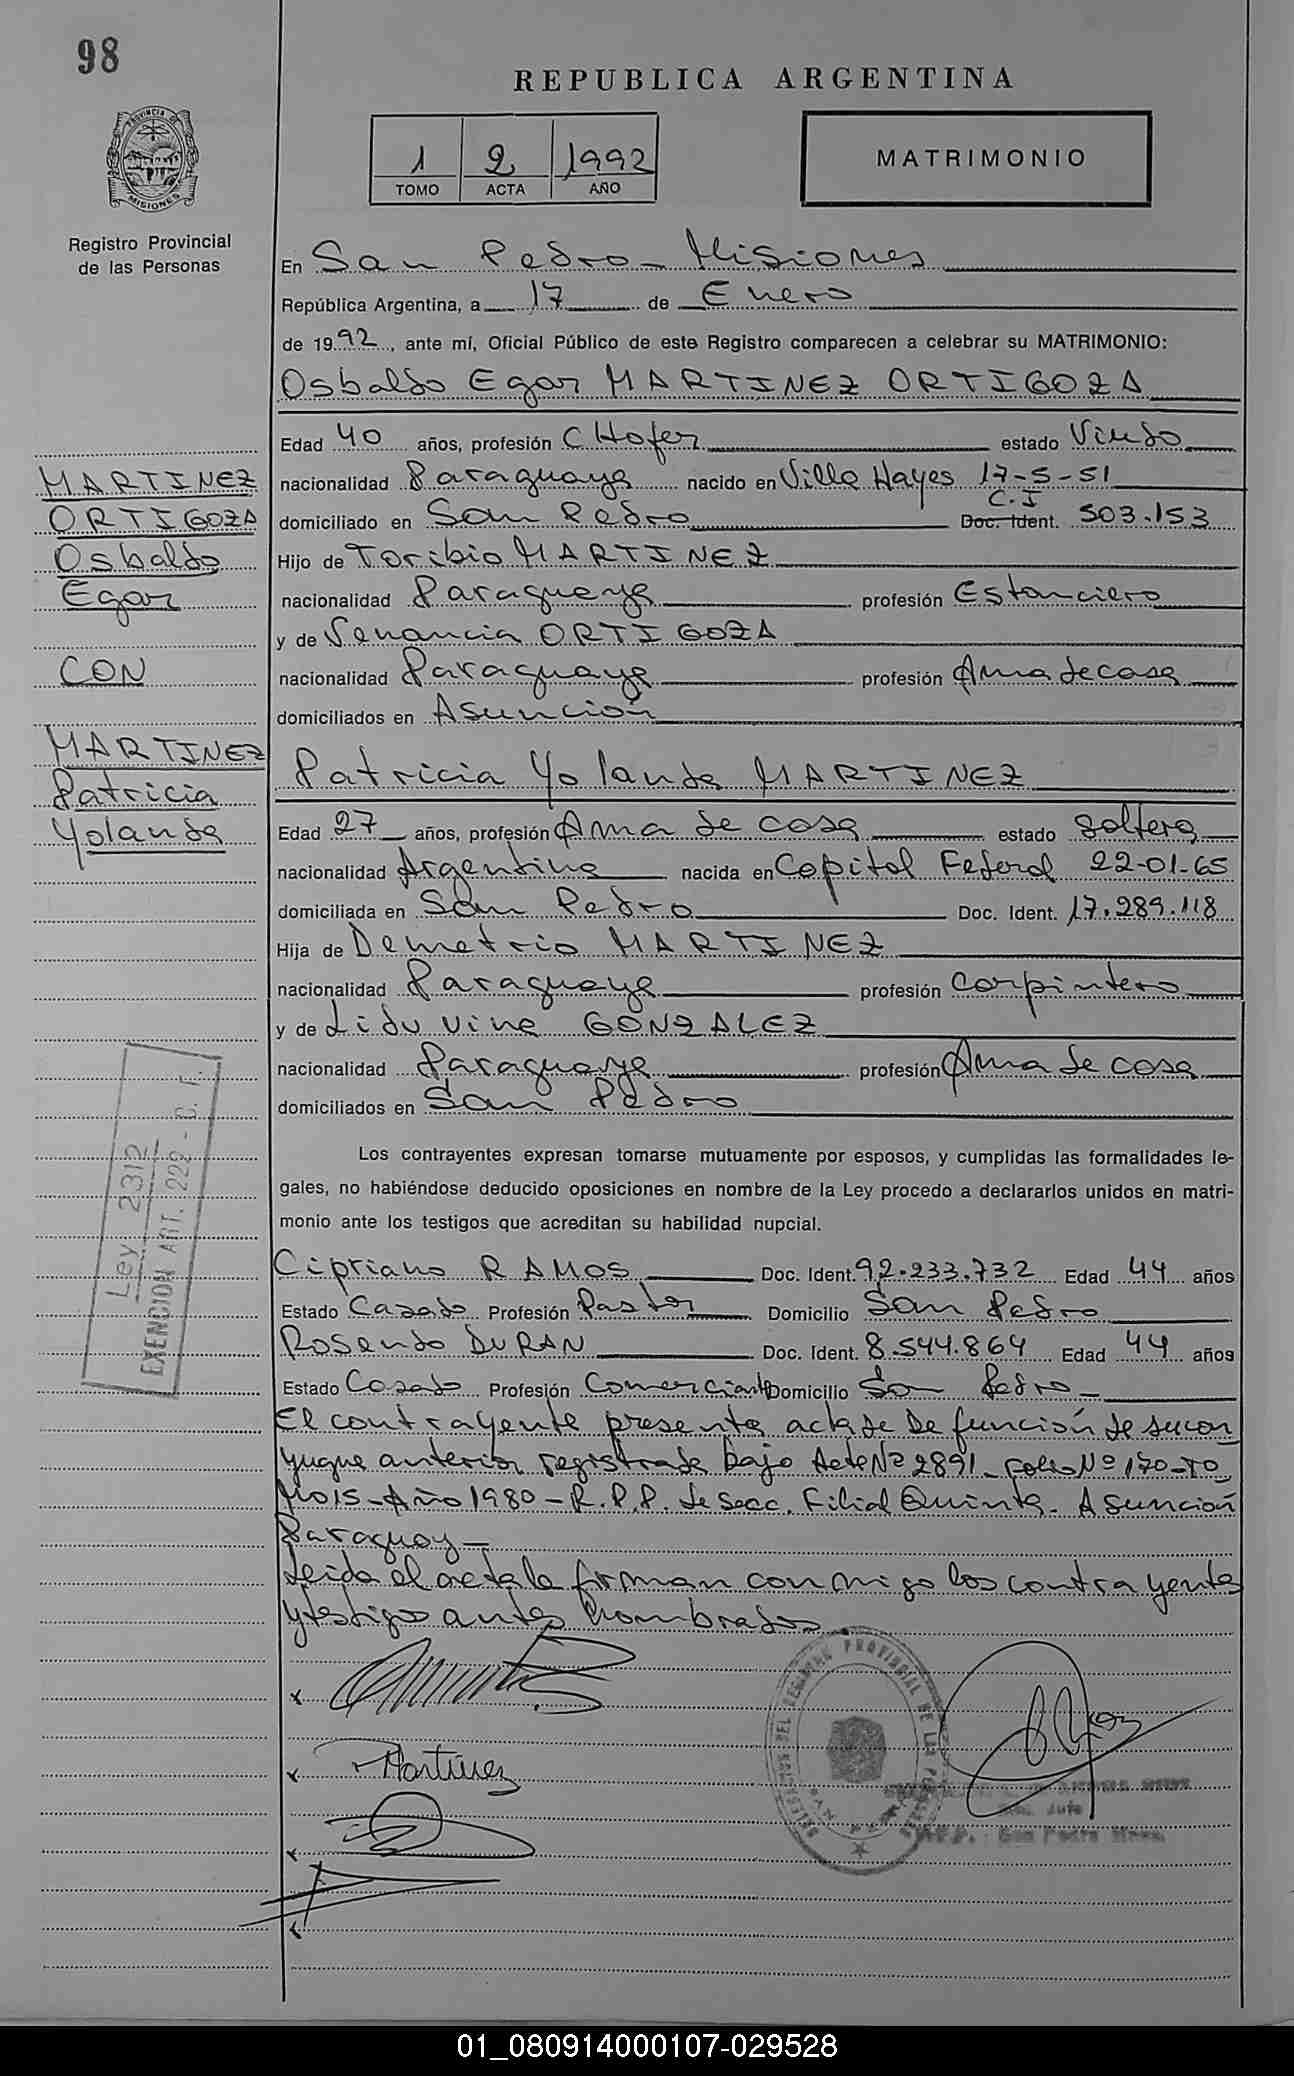 98
REPUBLICA ARGENTINA
1 2 1992
TOMO ACTA AÑO
MATRIMONIO
PROVINCIA DE
MISIONES
Registro Provincial
de las Personas
En San Pedro - Misiones
República Argentina, a 17 de Enero
de 1992, ante mí, Oficial Público de este Registro comparecen a celebrar su MATRIMONIO:
Osbaldo Egar MARTINEZ ORTIGOZA
Edad 40 años, profesión CHofer estado Viudo
nacionalidad Paraguaya nacido en Villa Hayes 17-5-51
C.I
domiciliado en San Pedro Doc. Ident. 503.153
Hijo de Toribio MARTINEZ
nacionalidad Paraguaya profesión Estanciero
y de Venancia ORTIGOZA
nacionalidad Paraguaya profesión Ama de casa
domiciliados en Asunción
MARTINEZ
ORTIGOZA
Osbaldo
Egar
CON
MARTINEZ
Patricia
Yolanda
Patricia Yolanda MARTINEZ
Edad 27 años, profesión Ama de casa estado Soltera
nacionalidad Argentina nacida en Capital Federal 22-01-65
domiciliada en San Pedro Doc. Ident. 17.289.118
Hija de Demetrio MARTINEZ
nacionalidad Paraguaya profesión Carpintero
y de Liduvina GONZALEZ
nacionalidad Paraguaya profesión Ama de casa
domiciliados en San Pedro
Ley 2312
EXENCION ART. 222 - C. F.
Los contrayentes expresan tomarse mutuamente por esposos, y cumplidas las formalidades le-
gales, no habiéndose deducido oposiciones en nombre de la Ley procedo a declararlos unidos en matri-
monio ante los testigos que acreditan su habilidad nupcial.
Cipriano RAMOS Doc. Ident. 92.233.732 Edad 44 años
Estado Casado Profesión Pastor Domicilio San Pedro
Rosendo DURAN Doc. Ident. 8.544.864 Edad 44 años
Estado Casado Profesión Comerciante Domicilio San Pedro -
El contrayente presenta acta de Defunción de su con
yuque anterior registrada bajo Acta Nº 2891 - folio Nº 170 - TO
Mo 15 - Año 1980 - R.P.P. de Secc. Filial Quinta - Asunción
Paraguay -
Leida el acta la firman conmigo los contrayentes
y testigos antes nombrados.
DELEGACION DEL REGISTRO PROVINCIAL DE LAS PERSONAS
SAN PEDRO
x
x Martinez
x
x
San Pedro Mnes.
01_080914000107-029528